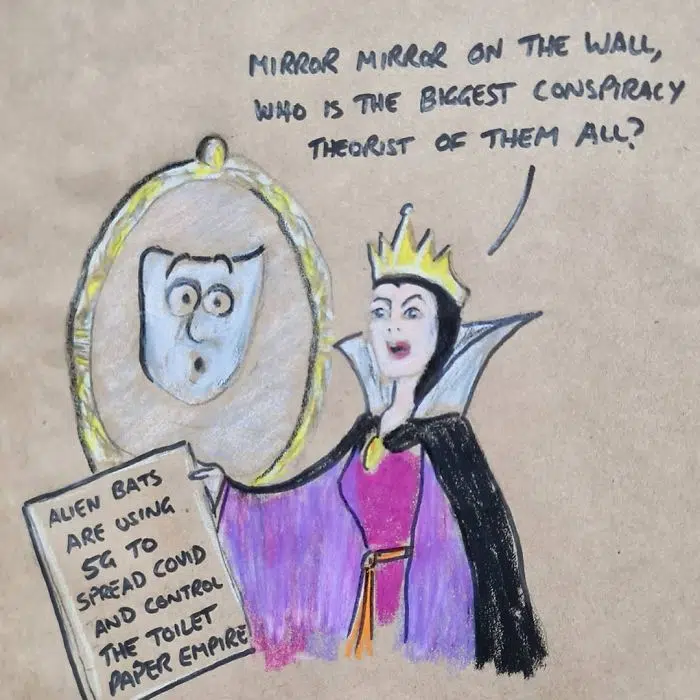 MIRROR MIRROR ON THE WALL,
WHO IS THE BIGGEST CONSPIRACY
THEORIST OF THEM ALL?
ALIEN BATS
ARE USING
5G TO
SPREAD COVID
AND CONTROL
THE TOILET
PAPER EMPIRE